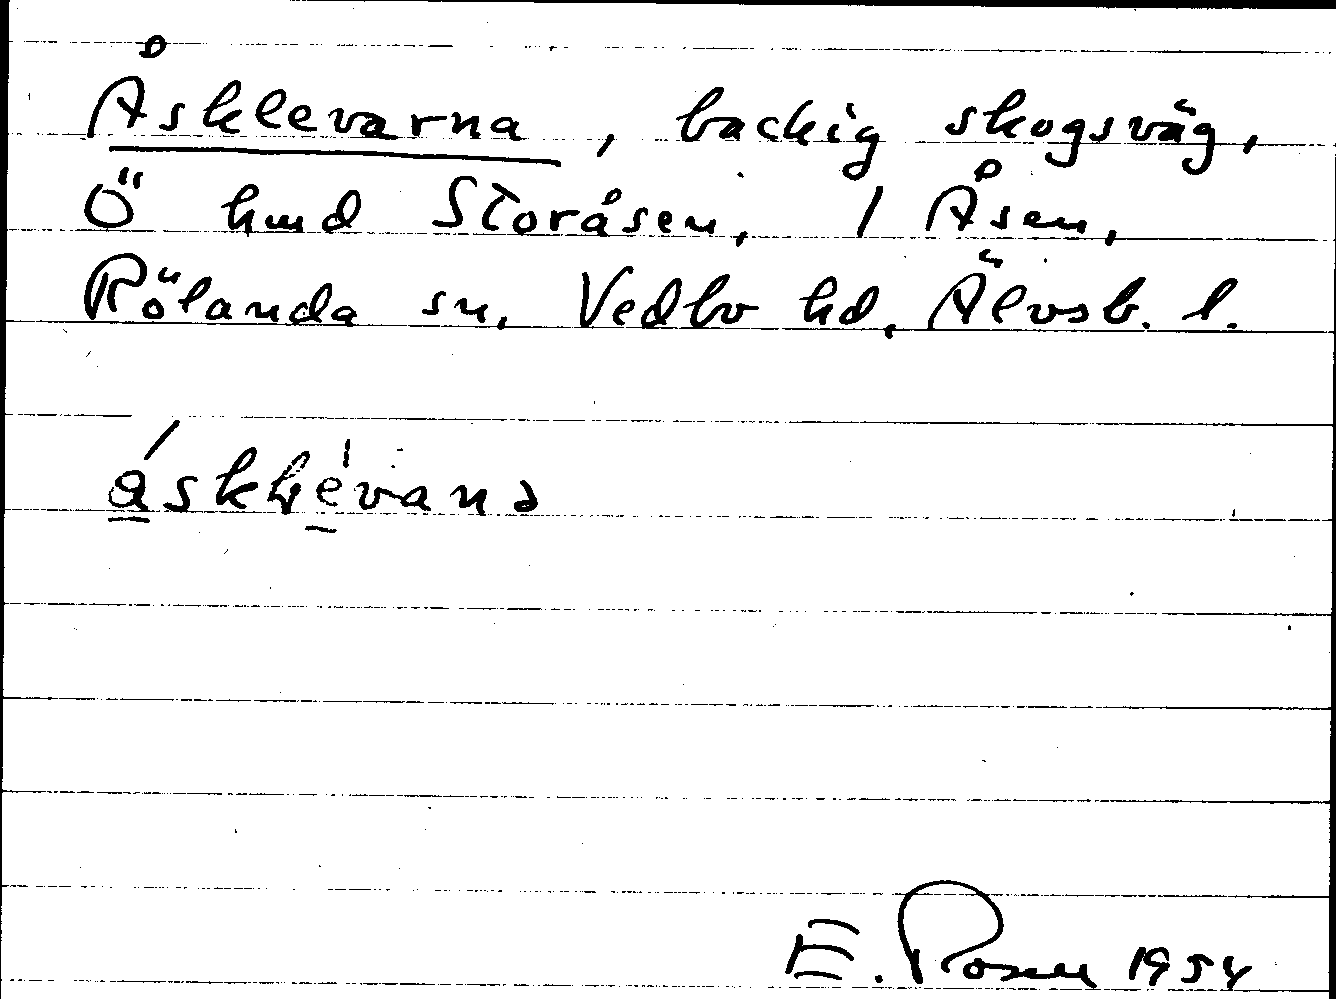 Åsklevarna, backig skogsväg,
Ö hmd Storåsen, 1 Åsen,
Rölanda sn, Vedbo hd, Älvsb. l.
E. Rosen 1954